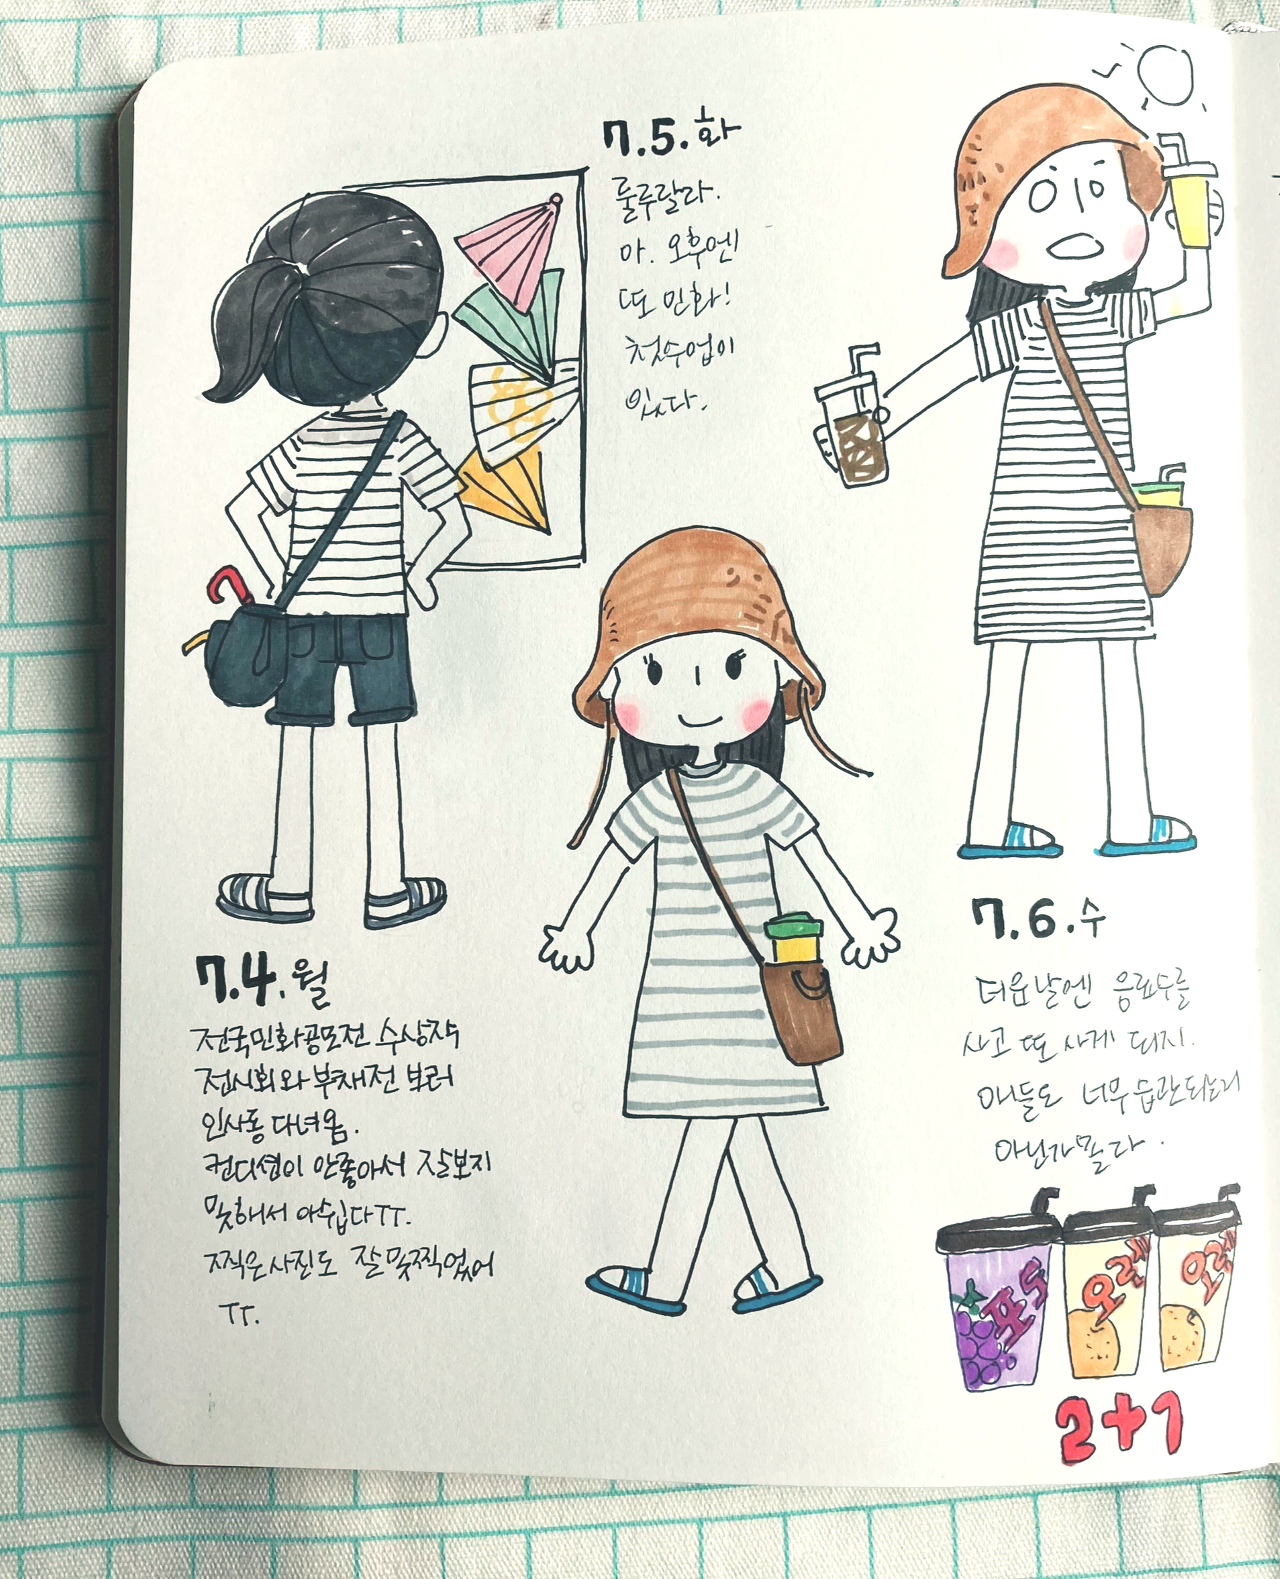 7.4.월
전국민화공모전 수상작
전시회와 부채전 보러
인사동 다녀옴.
컨디션이 안좋아서 잘보지
못해서 아쉽다TT.
찍은사진도 잘못찍었어
TT.
7.5.화
룰루랄라.
아. 오후엔
또 민화!
첫수업이
있다.
7.6.수
더운날엔 음료수를
사고 또 사게 되지.
애들도 너무 습관되는거
아닌가몰라.
포도
오렌
오렌
2+1